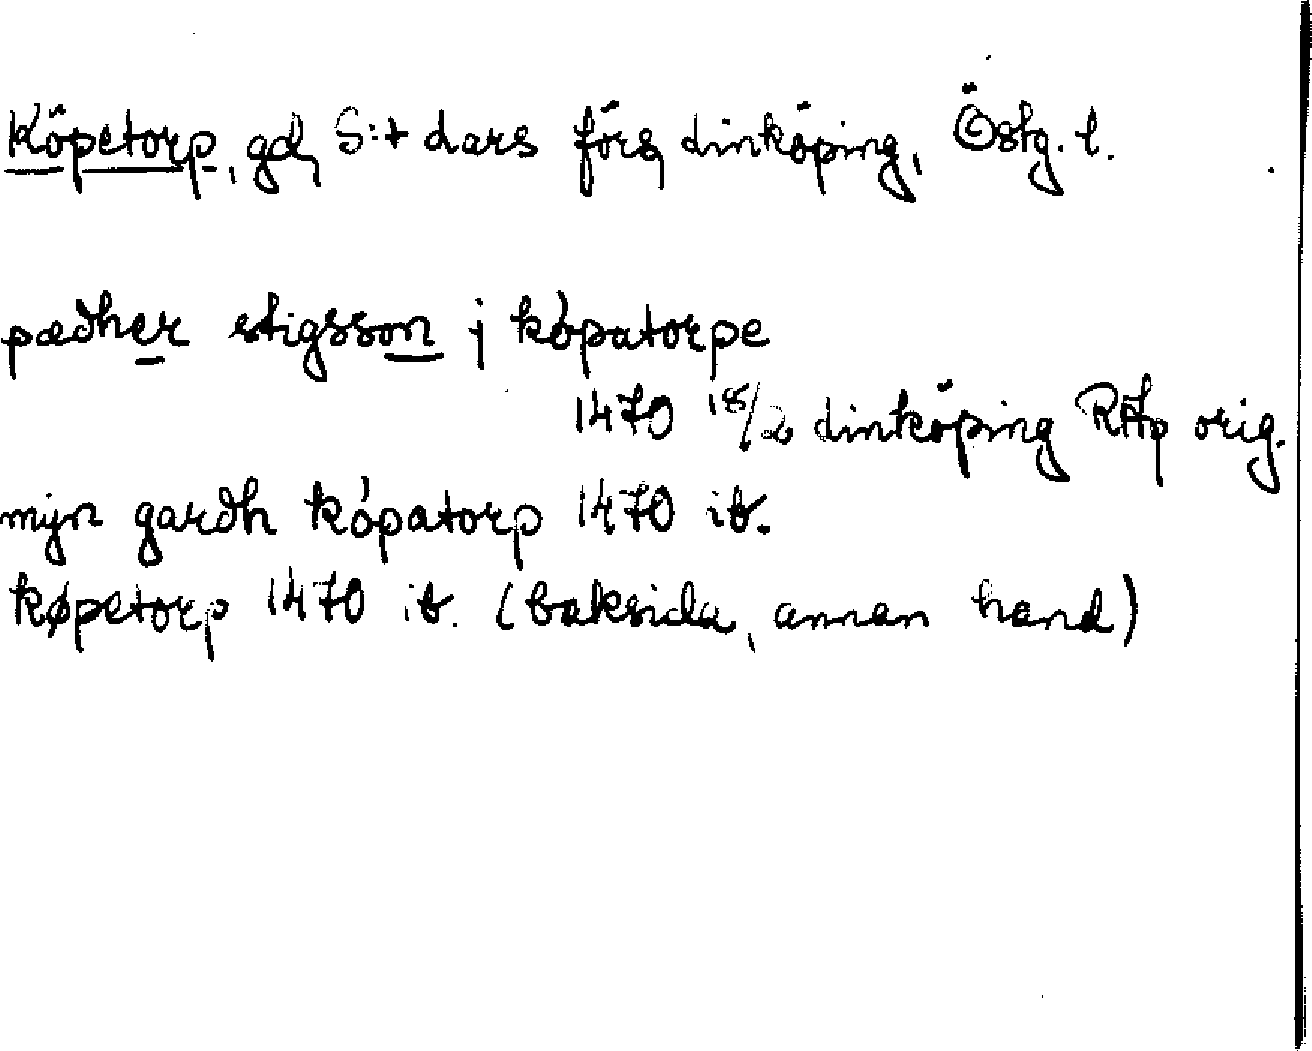 Köpetorp, gd, S:t Lars förs, Linköping, Östg. l.
pædher stigsson j kópatorpe
1470 18/2 Linköping RAp orig.
mijn gardh kópatorp 1470 ib.
køpetorp 1470 ib. (baksida, annan hand)